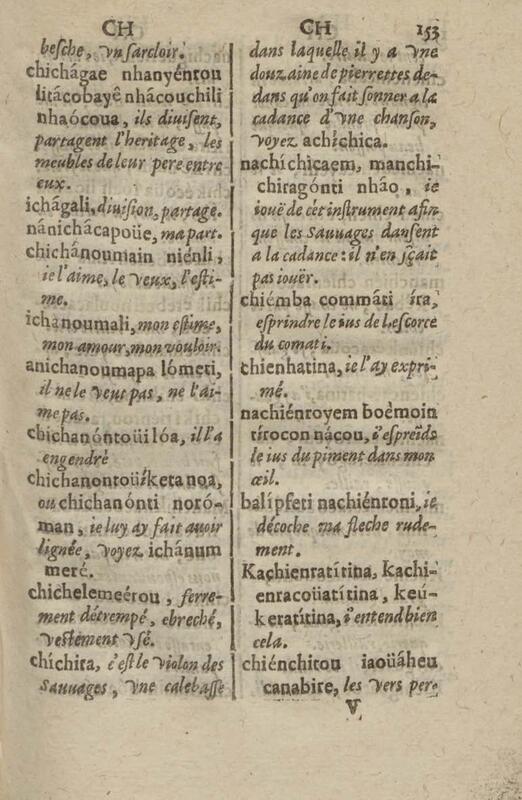 CH
besche, vn sarcloir.
chichágae nhanyéntou
litácobayê nhácouchili
nhaócoua, ils diuisent,
partagent l'heritage, les
meubles de leur pere entre
eux.
ichágali, diuision, partage.
nánichácapoüe, ma part.
chichánoumain niénli,
ie l'aime, le veux, l'esti-
me.
ichanoumali, mon estime,
mon amour, mon vouloir.
anichanoumapa lómeti,
il ne le veut pas, ne l'ai-
me pas.
chichanóntoüilóa, il l'a
engendrè
chichanontoüíketa noa,
ou chichanónti noró-
man, ie luy ay fait auoir
lignée, voyez ichánum
meré.
chichelemeérou, ferre-
ment détrempé, ebreché,
vestement vsé.
chíchira, c'est le violon des
Sauuages, vne calebasse
CH
153
dans laquelle il y a vne
douzaine de pierrettes de-
dans qu'on fait sonner a la
cadance d'vne chanson,
voyez achíchica.
nachíchicaem, manchi-
chiragónti nháo, ie
iouë de cét instrument afin
que les Sauuages dansent
a la cadance: il n'en sçait
pas iouër.
chiémba commáti íra,
esprindre le ius de l'escorce
du comati.
chienhatina, ie l'ay expri-
mé.
nachiénroyem boèmoin
tírocon nácou, i'espreïds
le ius du piment dans mon
œil.
balípfeti nachiéntoni, ie
décoche ma fleche rude-
ment.
Kachienratítina, kachi-
enracoüatítina, keú-
keratítina, i'entend bien
cela.
chiénchitou iaoüáheu
canabire, les vers per-
V